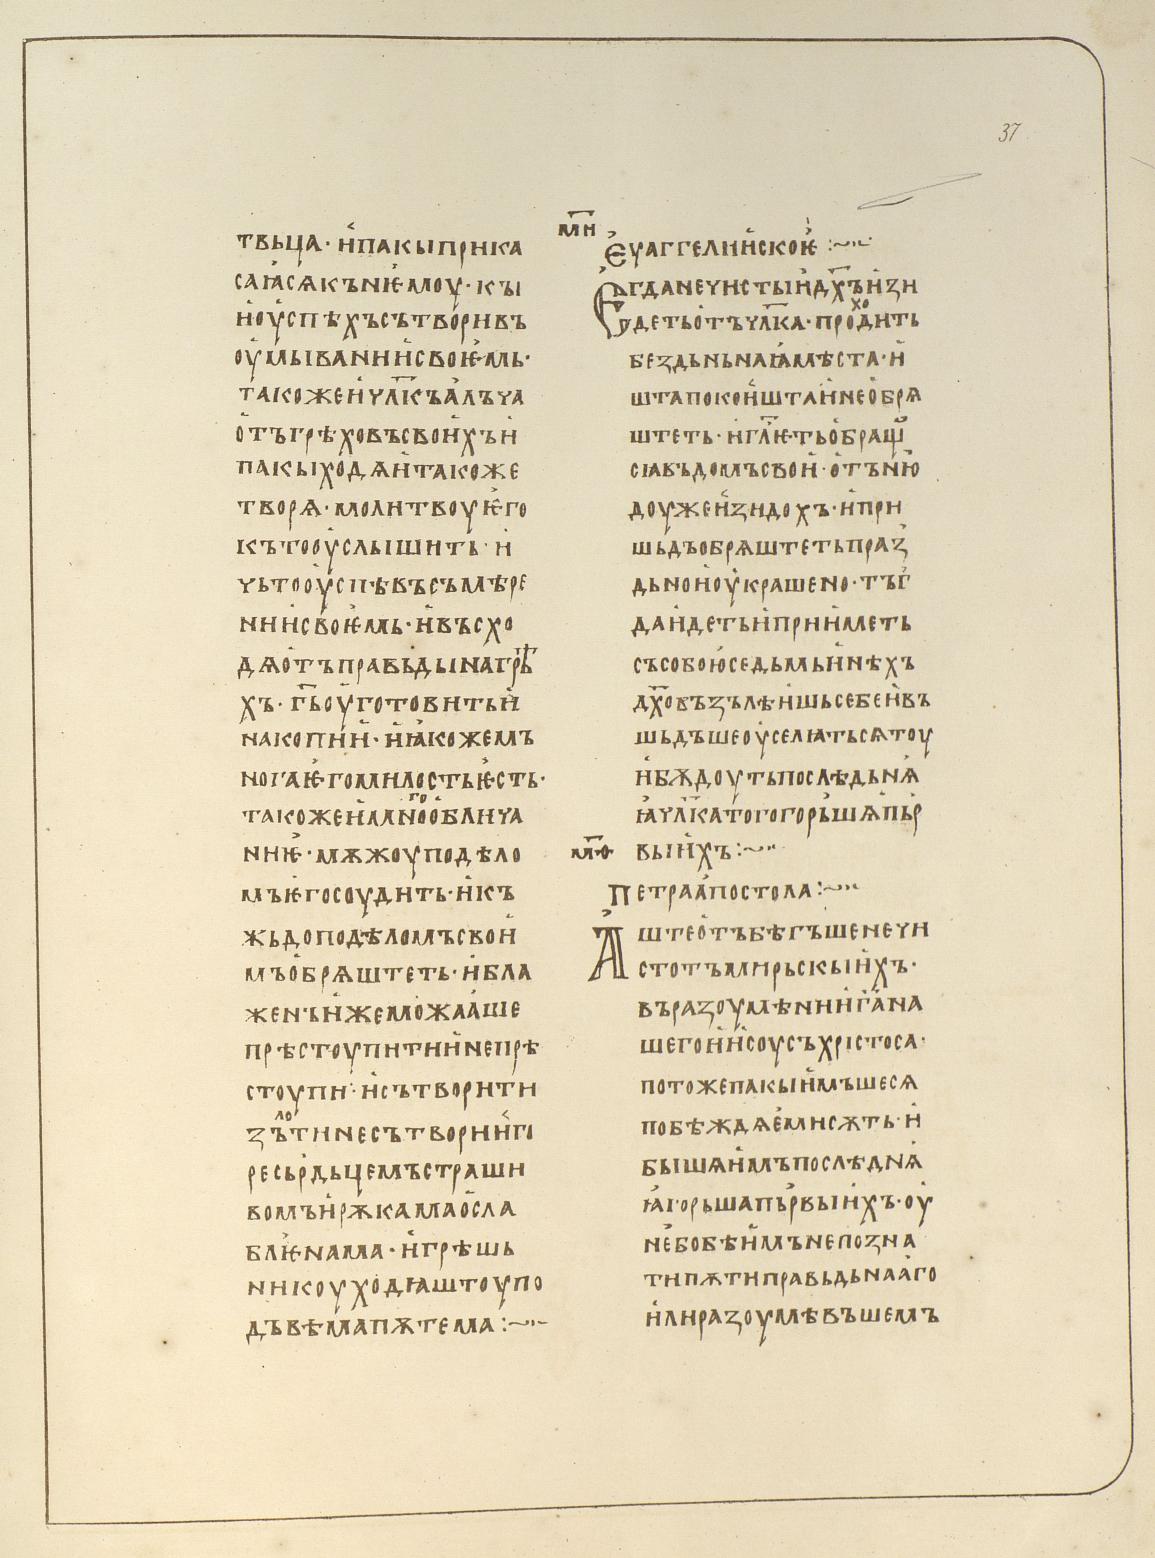 37
твьца· и пакы прика
саꙗсѧ къ нѥмоу· кы
и оуспѣхъ сътвори въ
оумывании своѥмь·
тако же и чл҃къ алъча
отъ грѣховъ своихъ и
пакы ходѧ и тако же
творѧ· молитвоу ѥго
къто оуслышить· и
чьто оуспѣ въ съмѣре
нии своѥмь· и въсхо
дѧ отъ правьды на грѣ
хъ· г҃ь оуготовить и
на копии· и ꙗко же мъ
ногаѥго милость ѥсть·
тако же и мъногоо облича
ниѥ· мѫжоу по дѣло
мъ ѥго соудить· и къ
жьдо по дѣломъ свои
мъ обрѧштеть· и бла
женъ иже можааше
прѣстоупити и не прѣ
стоупи· и сътворити
зълоти не сътвори и гі
ре сьрдьцемъ страши
вомъ и рѫкама осла
блѥнама· и грѣшь
никоу ходꙗштоу по
дъвѣма пѫтема :~
м҃и
Еуаггелиискоѥ :~
Егда нечистыи дх҃ъ изи
детьотъ чл҃ка· проходить
бездьньнаꙗ мѣста· и
шта покои шта и не обрѧ
штеть· и гл҃ѥть обращѫ
сꙗ въ домъ свои· отъ ню
доу же изидохъ· и при
шьдъ обрѧштеть праз
дьно и оукрашено· тъг
да идеть и приимлеть
съ собою седьмь инѣхъ
дх҃овъ зълѣишь себе и въ
шьдъше оуселꙗтьсѧ тоу
и бѫдоуть послѣдьнѧ
ꙗ чл҃ка того горьшѧ пьр
выихъ :~
м҃ѳ
Петра апостола :~
Аште отъбѣгъше нечи
стотъ мирьскыихъ·
въ разоумѣнии г҃а на
шего иисоусъ хрістоса·
потоже пакы имъшесѧ
побѣждѧеми сѫть· и
бышѧ имъ послѣднѧ
ꙗ горьша пьрвыихъ· оу
не бо бѣ имъ не позна
ти пѫти правьдьнааго
или разоумѣвъшемъ